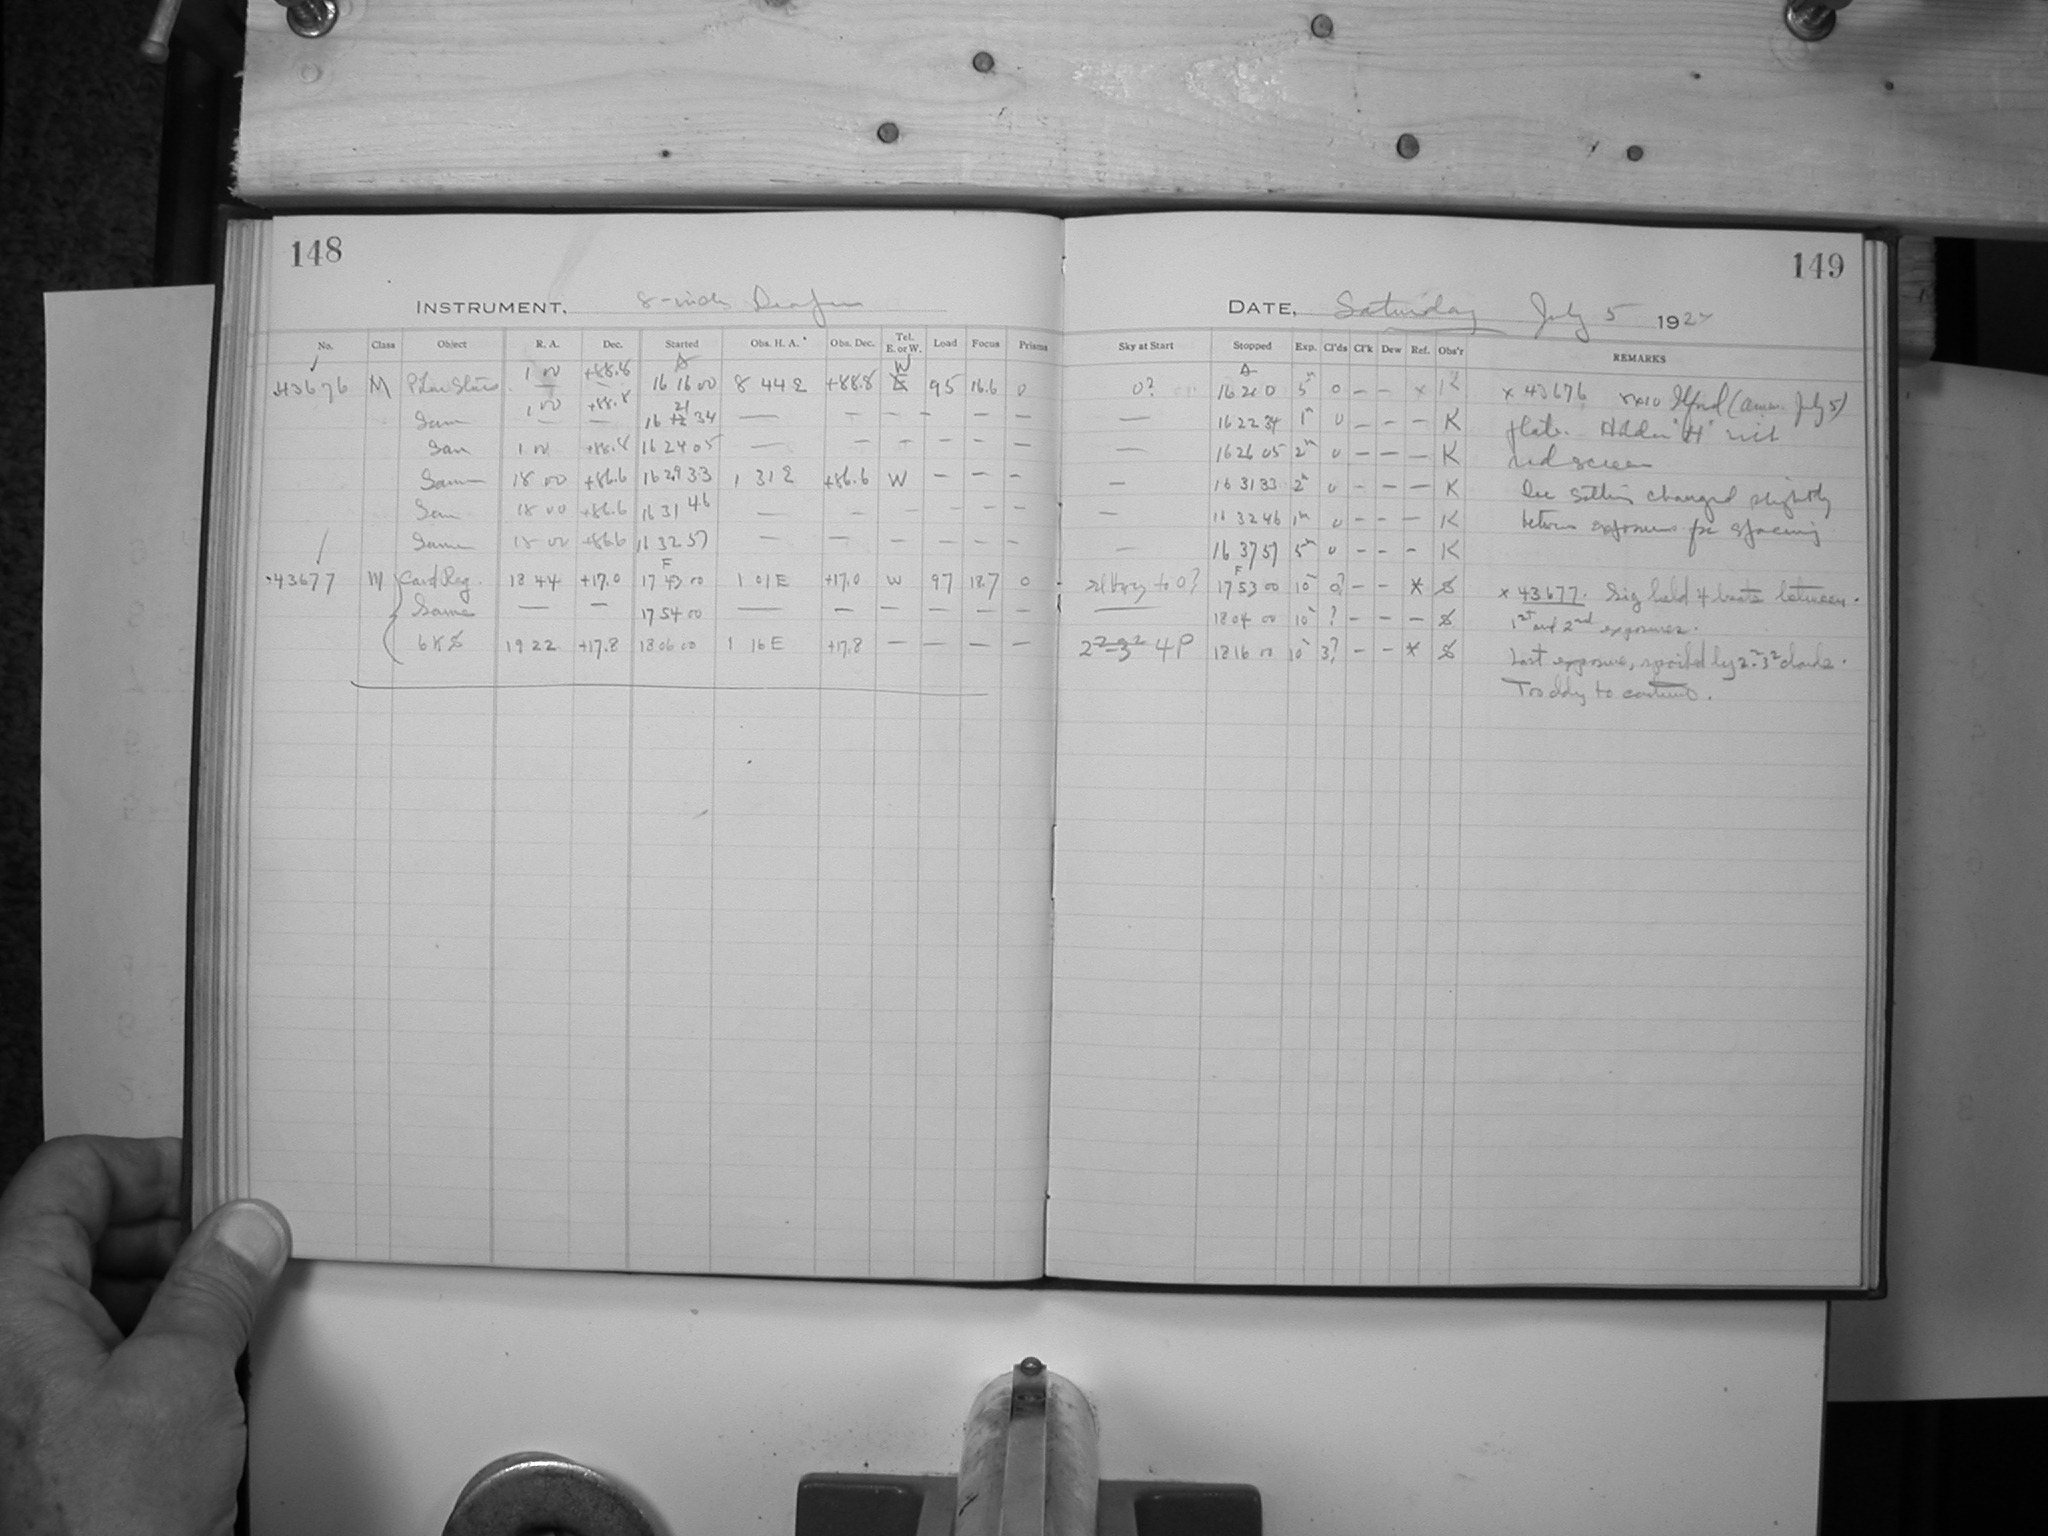 148
INSTRUMENT. 8-inch Draper
No. Class Object R. A. Dec. Started Obs. H. A. Obs. Dec. Tel. E. or W. Load Focus Prisms
43676 M Polar Stars 1 00 +88.8 16 16 00 8 44 E +88.8 W 95 16.6 0
Same 1 00 +88.8 16 21 34 — — — — — —
Same 1 00 +88.8 16 24 05 — — — — — —
Same 18 00 +86.6 16 29 33 1 31 E +86.6 W — — —
Same 18 00 +86.6 16 31 46 — — — — — —
Same 18 00 +86.6 16 32 57 — — — — — —
43677 M Card Reg. 18 44 +17.0 17 43 00 1 01 E +17.0 W 97 18.7 0
Same — — 17 54 00 — — — — — —
19 22 +17.8 18 06 00 1 16 E +17.8 — — — —
149
DATE, Saturday July 5 192
Sky at Start Stopped Exp. Cl'ds Cl'k Dew Ref. Obs'r REMARKS
0? 16 21 0 5m 0 — — x K x 43676 8x10 Ilford (ann. July 5)
— 16 22 34 1m 0 — — — K plate. Holder "H" with
— 16 26 05 2m 0 — — — K red screen
— 16 31 33 2m 0 — — — K Dec setting changed slightly
— 16 32 46 1m 0 — — — K between exposures for spacing
— 16 37 57 5m 0 — — — K
to 0? 17 53 00 10m 0? — — * x 43677. Sig held 4 beats between
— 18 04 00 10m ? — — — 1st and 2nd exposures.
2²-3² 4P 18 16 00 10m 3? — — * Last exposure, spoiled by 2²-3² clouds.
Too cldy to continue.